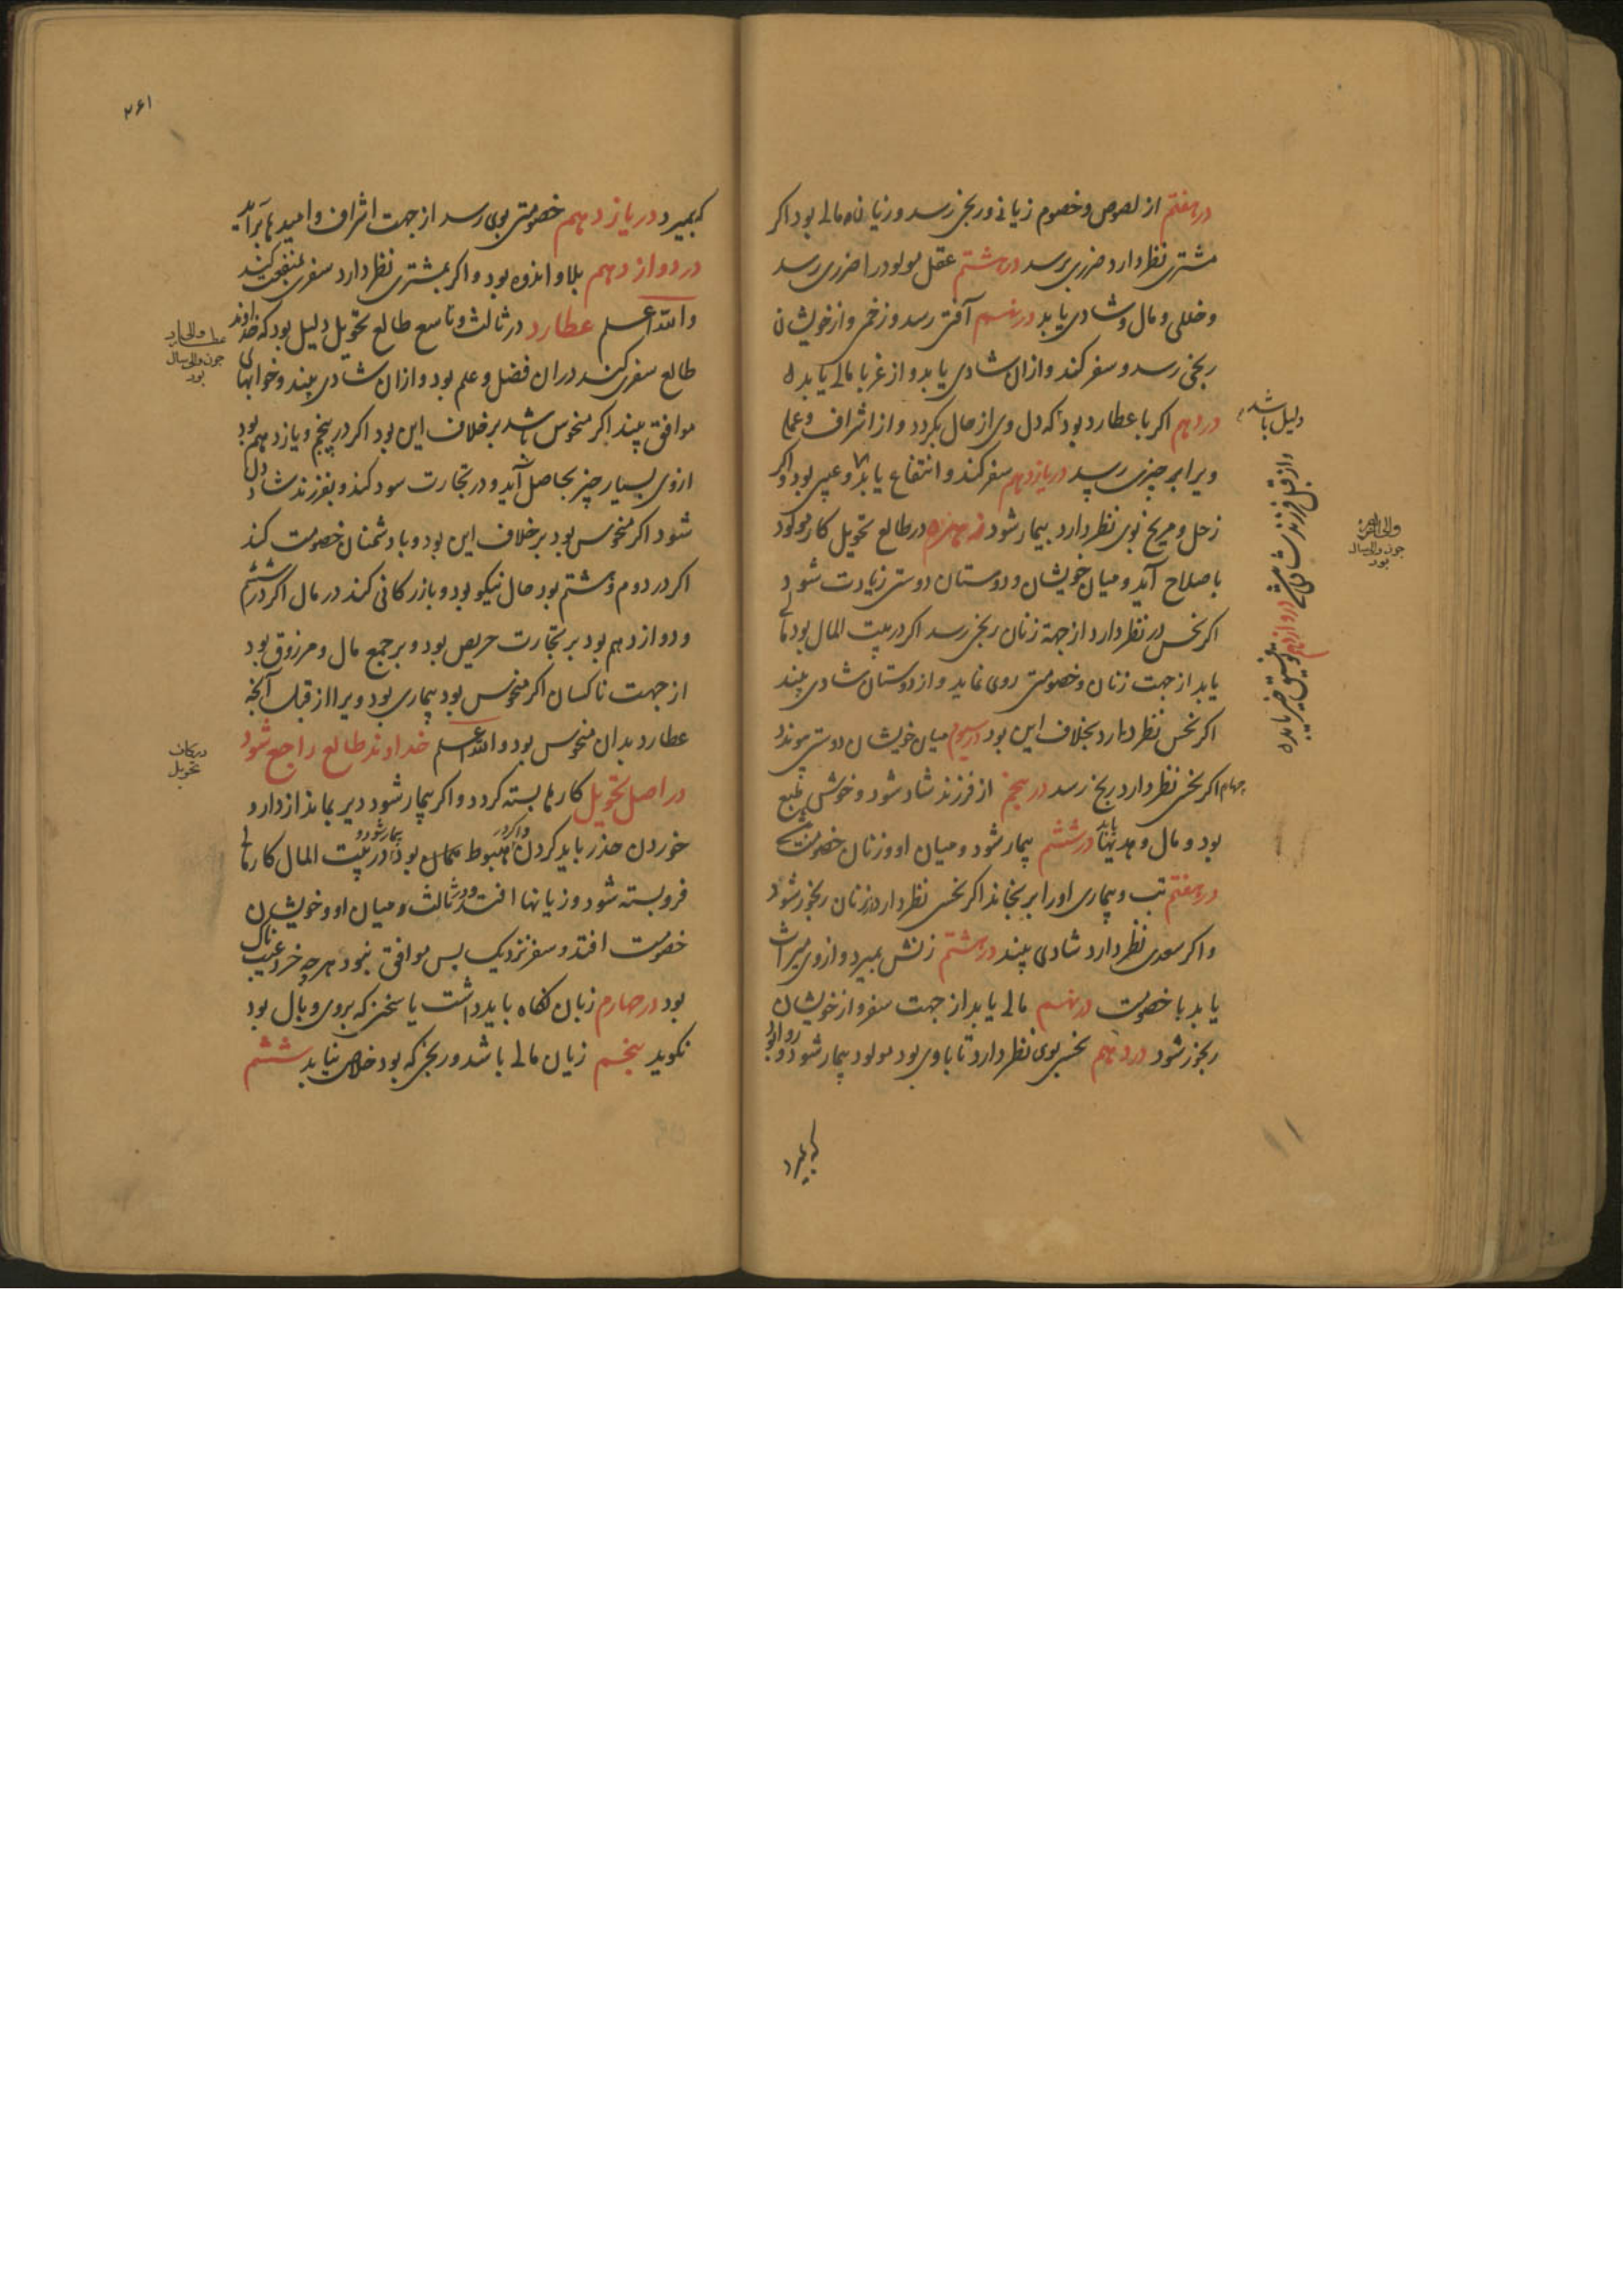 در هفتم از لصوص و خصوم زیانی و رنجی رسد و زیان مالی بود اکر
مشتری نظر دارد ضرری برسد در هشتم عقل مولود را ضرری رسد
و خللی و مال و شادی یابد در نهم آفتی رسد و زخمی و از خویشان
رنجی رسد و سفر کند و ازان شادی یابد و از غربا مالی یابد
در دهم اکر با عطارد بود که دل وی از حال بکردد و از اشراف و عما
ویرا بر چیزی رسد در یازدهم سفر کند و انتفاع یابد و عیبی بود و اکر
زحل و مریخ بوی نظر دارد بیمار شود زهره در طالع تحویل کار مولود
باصلاح آید و میان خویشان و دوستان دوستی زیادت شود
اکر نحس در نظر دارد از جهة زنان رنجی رسد اکر در بیت المال بود مالی
یابد از جهت زنان و خصومتی روی نماید و از دوستان شادی بیند
اکر نحس نظر دارد بخلاف این بود در سیوم میان خویشان دوستی پیوندد
چهارم اکر نحس نظر دارد رنج رسد در پنجم از فرزند شاد شود و خوش طبع
بود و مال و هدیها یابد در ششم بیمار شود و میان او و زنان خصومت
در هفتم تب و بیماری اورا برنجاند اکر نحس نظر دارد از زنان رنجور شود
و اکر سعدی نظر دارد شادی بیند در هشتم زنش بمیرد و از وی میراث
یابد با خصومت در نهم مالی یابد از جهت سفر و از خویشان
رنجور شود در دهم نحس بوی نظر دارد تا باوی بود مولود بیمار شود و
دلیل باشد
و از قبل فرزند شادی در دوازدهم
چون والی سال
بود
که بمیرد
۲۶۱
که بمیرد و در یازدهم خصومتی بوی رسد از جهت اشراف و امیدها برآید
در دوازدهم بلا و اندوه بود و اکر بمشتری نظر دارد سفری بمنفعت کند
والله اعلم عطارد در ثالث و تاسع طالع تحویل دلیل بود که خداوند
طالع سفری کند دران فضل و علم بود و ازان شادی بیند و خوابهای
موافق بیند اکر منحوس باشد برخلاف این بود اکر در پنجم و یازدهم بود
ازوی بسیار چیز بحاصل آید و در تجارت سود کند و بفرزند شاد دل
شود اکر منحوس بود برخلاف این بود و با دشمنان خصومت کند
اکر در دوم و هشتم بود حال نیکو بود و بازرکانی کند در مال اکر در ششم
و دوازدهم بود بر تجارت حریص بود و بر جمع مال و مرزوق بود
از جهت ناکسان اکر منحوس بود بیماری بود ویرا از قبل آنچه
عطارد بدان منحوس بود والله اعلم خداوند طالع راجع شود
در اصل تحویل کارها بسته کردد و اکر بیمار شود دیر بماند از دارو
خوردن حذر باید کردن و اکر در هبوط همان بود بیمار شود و در بیت المال کارهای
فروبسته شود و زیانها افتد و در ثالث و میان او و خویشان
خصومت افتد و سفر نزدیک بس موافق نبود هرچه خرد عیب ناک
بود در چهارم زبان نکاه باید داشت با سخنی که بروی وبال بود
نکوید پنجم زیان مالی باشد و رنجی که بود خلاص نیابد ششم
عطارد
چون والی سال
بود
تحویل